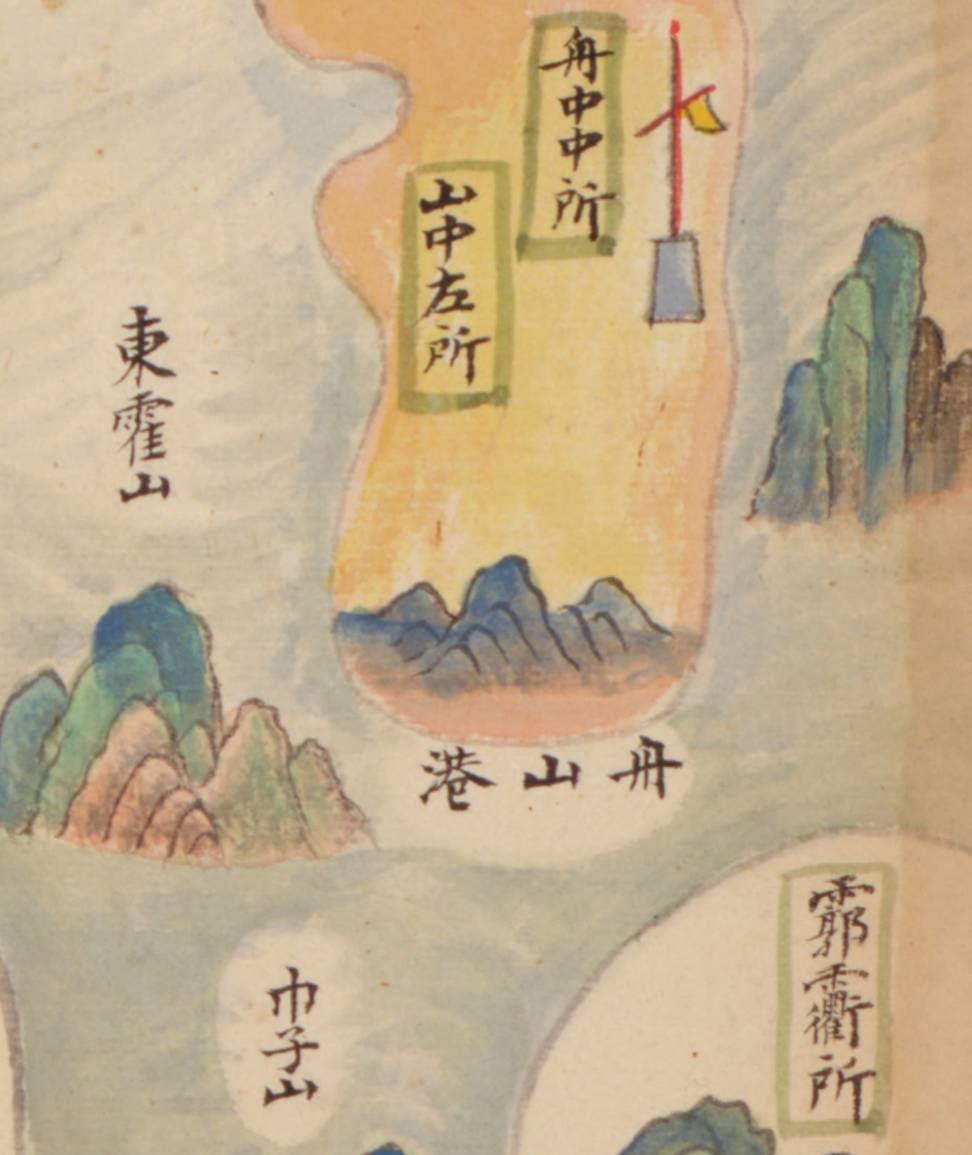 舟中中所
山中左所
東霍山
舟山港
霩所
巾子山